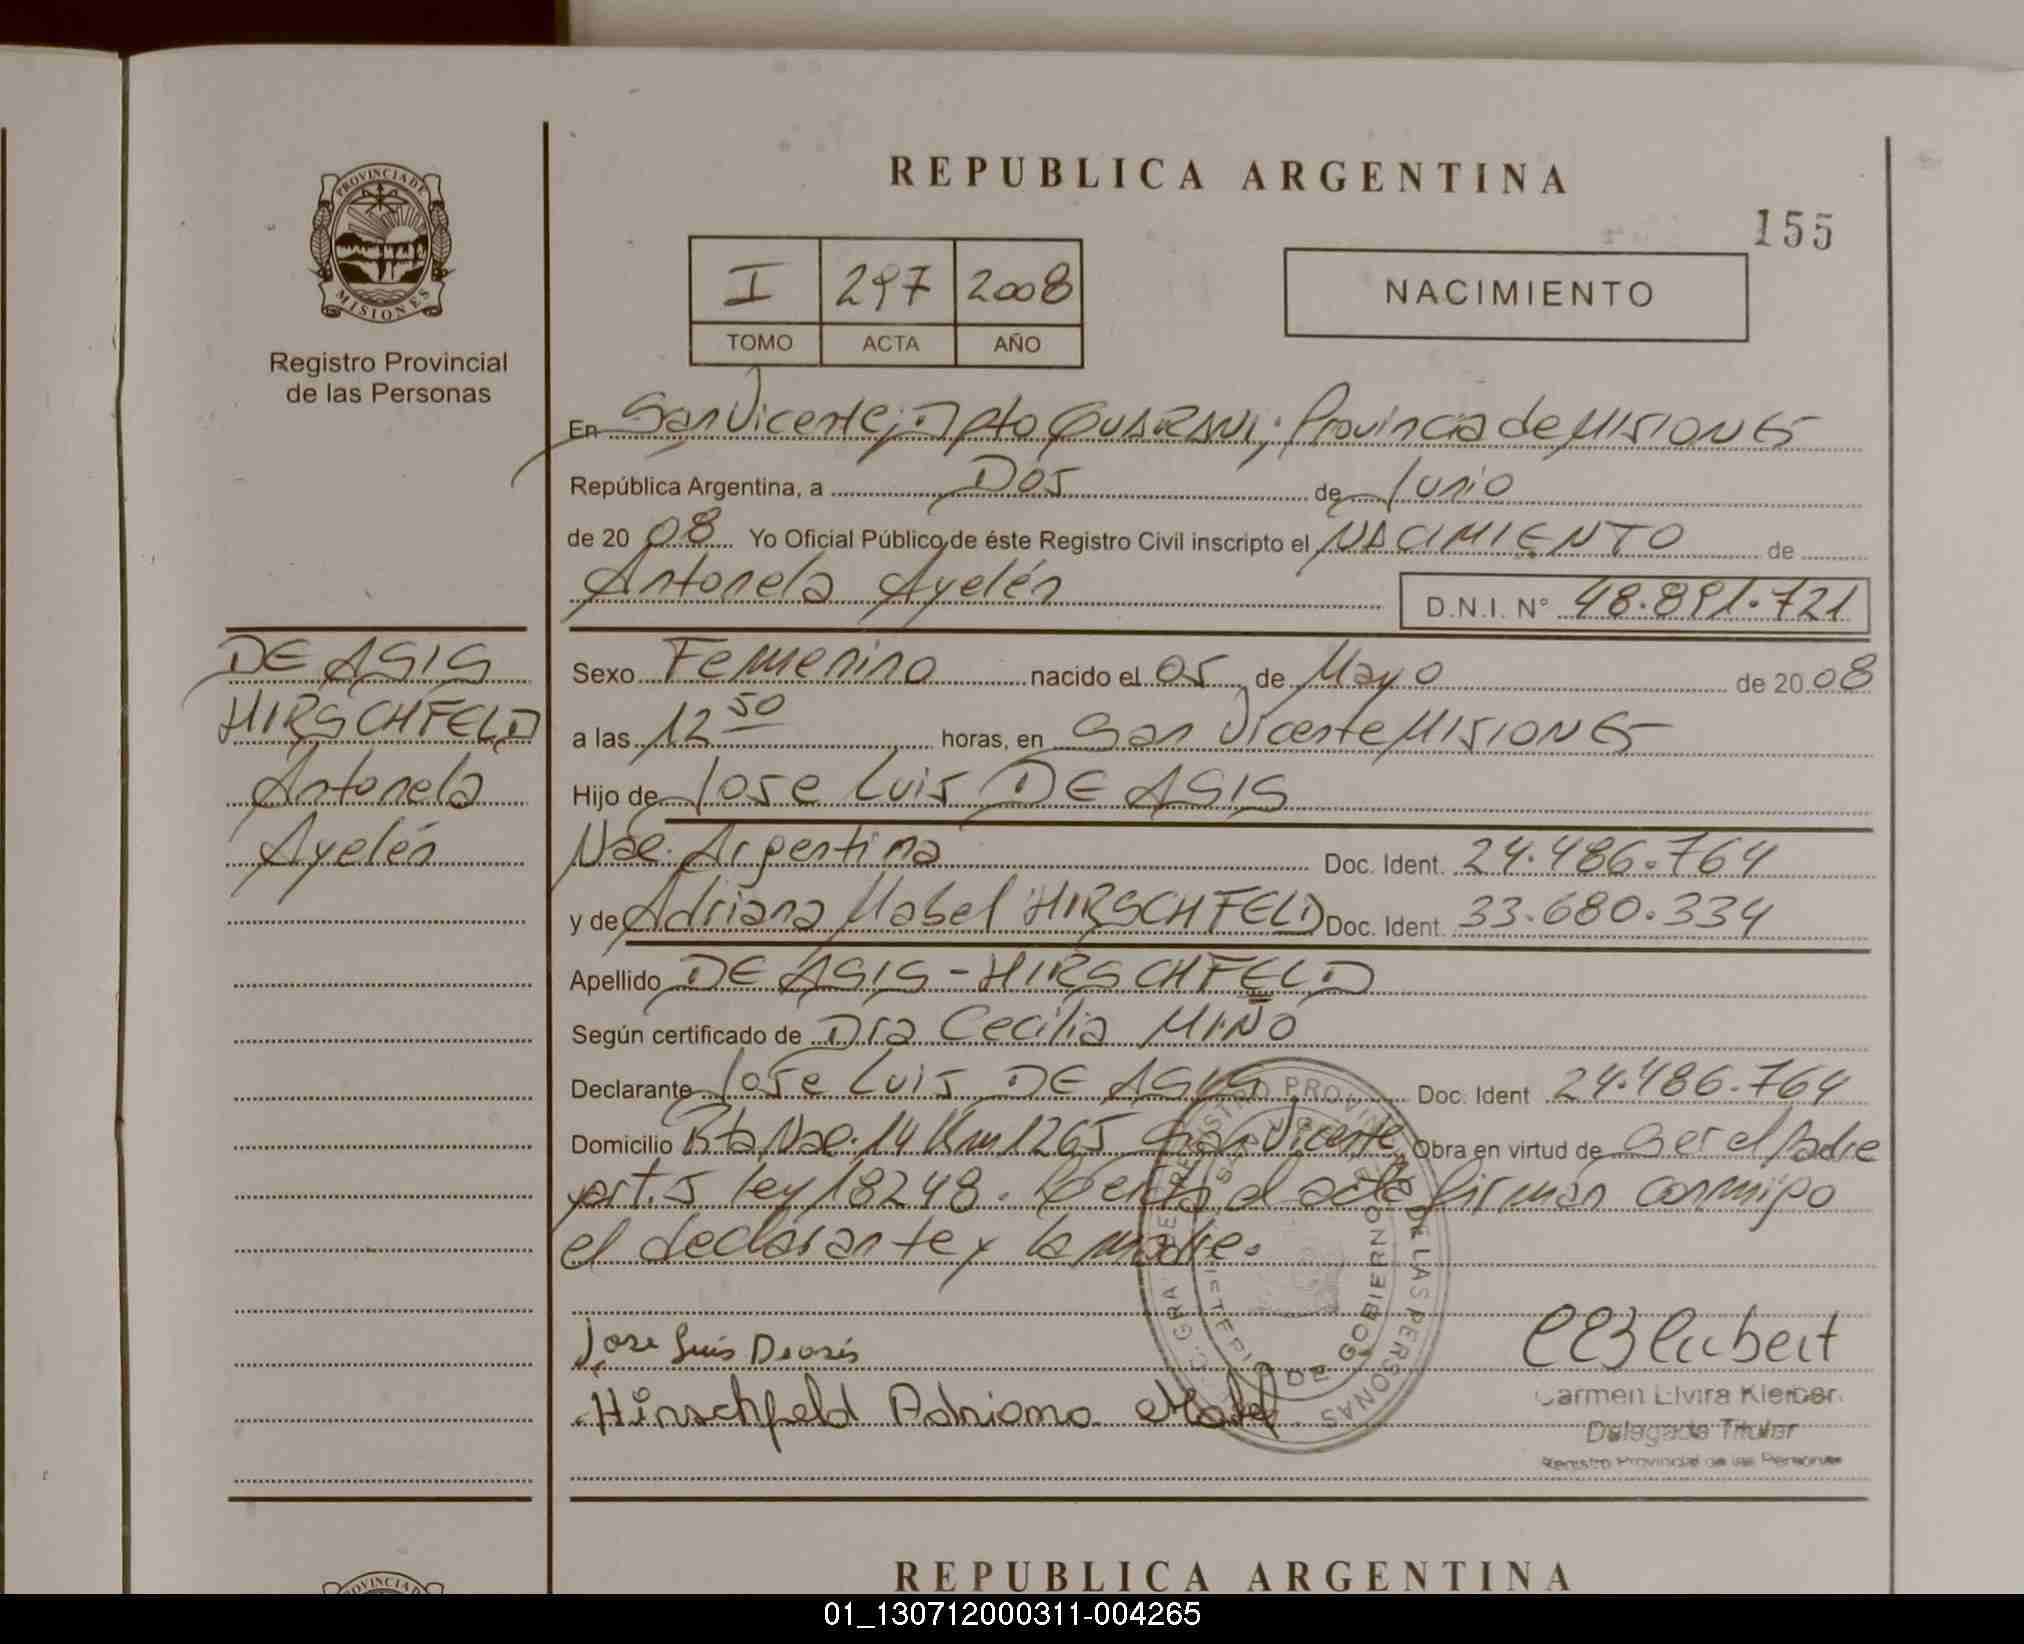 REPUBLICA ARGENTINA
155
PROVINCIA DE
MISIONES
Registro Provincial
de las Personas
I 297 2008
TOMO ACTA AÑO
NACIMIENTO
En San Vicente; Dpto GUARANI; Provincia de MISIONES
República Argentina, a Dos de Junio
de 20 08 Yo Oficial Público de éste Registro Civil inscripto el NACIMIENTO de
Antonela Ayelén D.N.I. Nº 48.891.721
DE ASIS
HIRSCHFELD
Antonela
Ayelén
Sexo Femenino nacido el 05 de Mayo de 20 08
a las 12 50 horas, en San Vicente MISIONES
Hijo de Jose Luis DE ASIS
Nac. Argentina Doc. Ident. 24.486.764
y de Adriana Mabel HIRSCHFELD Doc. Ident. 33.680.334
Apellido DE ASIS - HIRSCHFELD
Según certificado de Dra Cecilia MIÑO
Declarante Jose Luis DE ASIS Doc. Ident 24.486.764
Domicilio Rta Nac. 14 Km 1265 San Vicente Obra en virtud de Ser el Padre
y art. 5 ley 18248. el acta firman conmigo
el declarante y la madre.
Jose Luis Deasis
Hirschfeld Adriana Mabel
Carmen Elvira
Delegada Titular
Registro Provincial de las Personas
REGISTRO PROVINCIAL DE LAS PERSONAS
DE GOBIERNO
REPUBLICA ARGENTINA
PROVINCIA DE
01_130712000311-004265